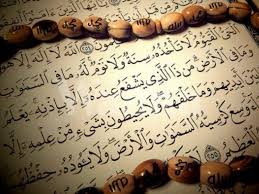 ٱللَّهُ لَآ إِلَٰهَ إِلَّا هُوَ
ٱلْحَىُّ ٱلْقَيُّومُ لَا تَأْخُذُهُۥ سِنَةٌ وَلَا نَوْمٌ لَّهُۥ مَا فِى ٱلسَّمَٰوَٰتِ
وَمَا فِى ٱلْأَرْضِ مَن ذَا ٱلَّذِى يَشْفَعُ عِندَهُۥٓ إِلَّا بِإِذْنِهِۦ يَعْلَمُ
أَيْدِيهِمْ وَمَا خَلْفَهُمْ وَلَا يُحِيطُونَ بِشَىْءٍ مِّنْ عِلْمِهِۦٓ إِلَّا
وَسِعَ كُرْسِيُّهُ ٱلسَّمَٰوَٰتِ وَٱلْأَرْضَ وَلَا يَـُٔودُهُۥ حِفْظُهُمَا
ٱلْعَظِيمُ